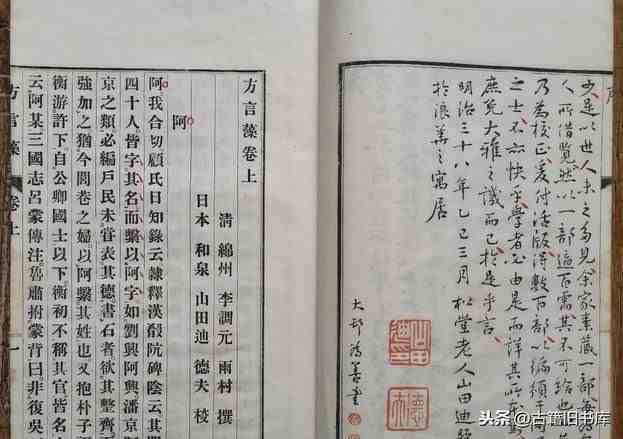 少是以世人未之多見余家素藏一部
人所借覽然以一部逼百需其不可給也
乃為校正爰付活版得數百部以編頒
之士不亦快乎學者由是而詳其所
庶免大雅之譏而已於是乎言
明治三十八年乙巳三月 松堂老人山田迪
於浪華之寓居
方言藻卷上
清 綿州 李調元 雨村 撰
日本 和泉 山田迪 德夫 校
阿
阿我合切顧氏日知錄云隸釋漢殽阬碑陰云其
四十人皆字其名而繫以阿字如劉興阿興潘京
京之類必編戶民未嘗表其德書石者欲其整齊
強加之猶今閭巷之婦以阿繫其姓也又抱朴子
衡游許下自公卿國士以下衡初不稱其官皆名
云阿某三國志呂蒙傳注魯肅拊蒙背曰非復吳
方言藻 卷上 一
头条 @古籍旧书库